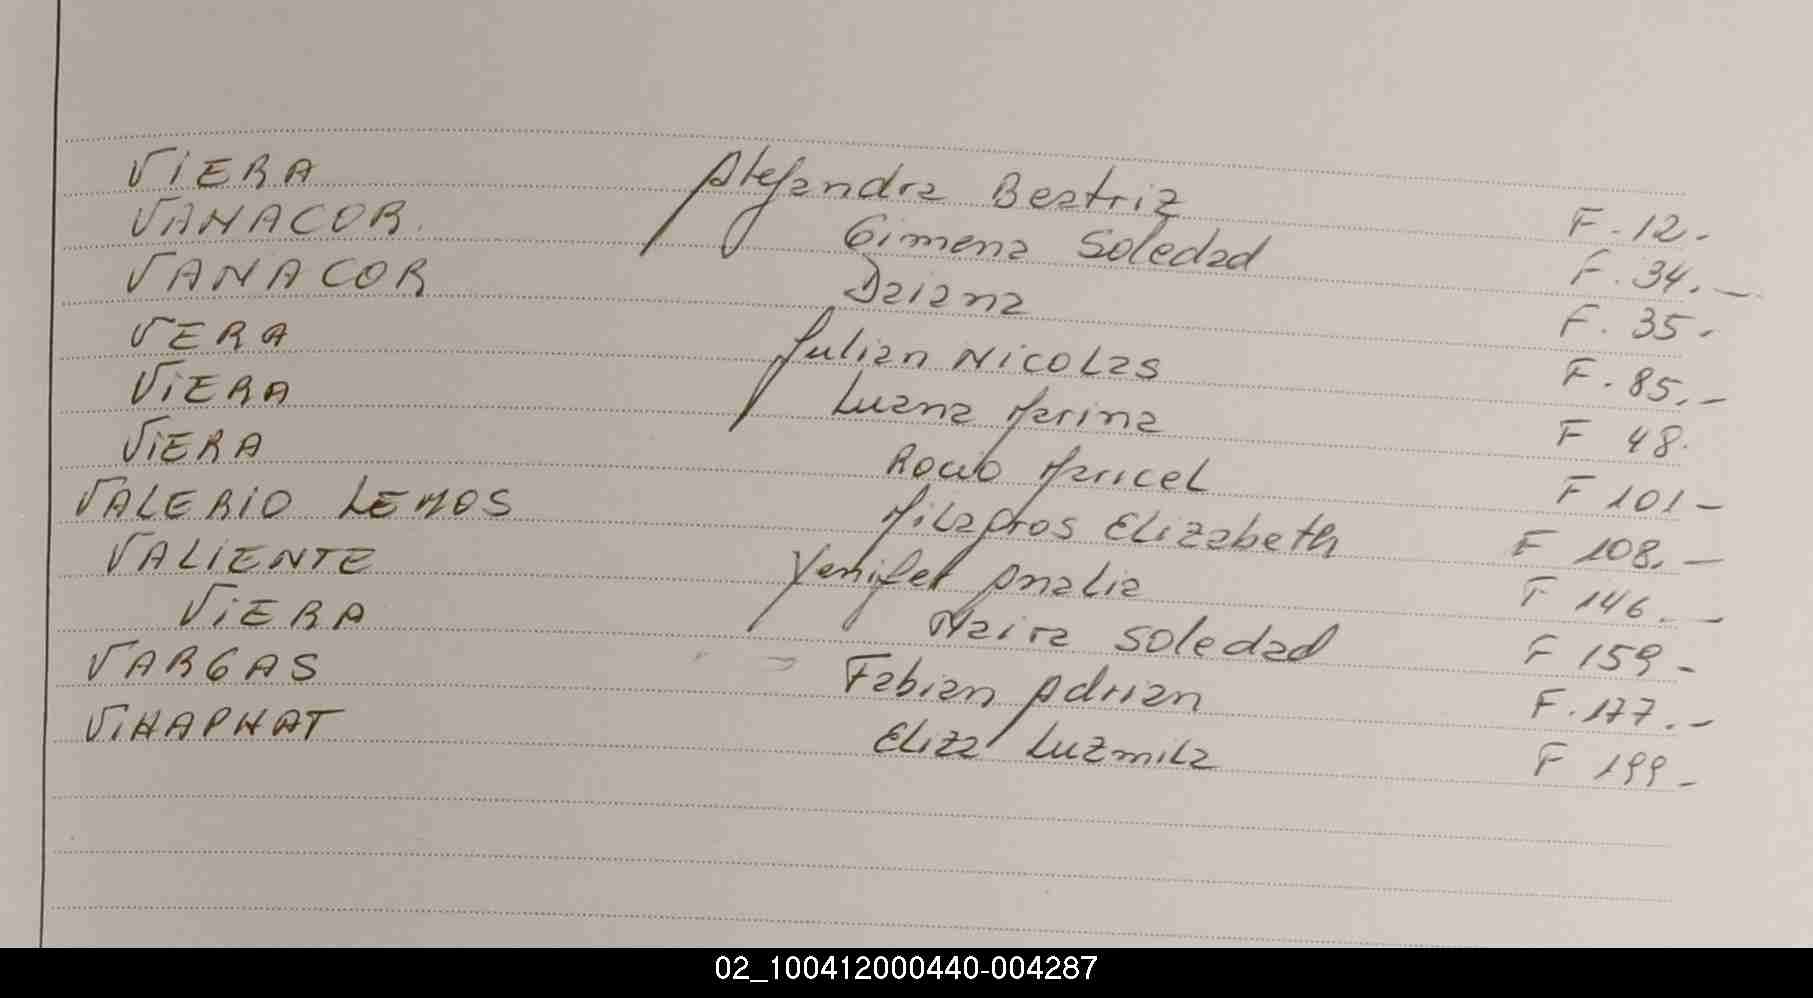 ViERA Alejandra Beatriz F. 12.-
VANACOR. Gimena Soledad F. 34.-
VANACOR Daiana F. 35.-
VERA Julian Nicolas F. 85.-
ViERA Luana Marina F 48.
ViERA Rocio Maricel F 101-
VALERIO LEMOS Milagros Elizabeth F 108.-
VALIENTE Yenifer Analia F 146.-
ViERA Maira Soledad F 159-
VARGAS Fabian Adrian F. 177.-
Eliza Luzmila F 199-
02_100412000440-004287